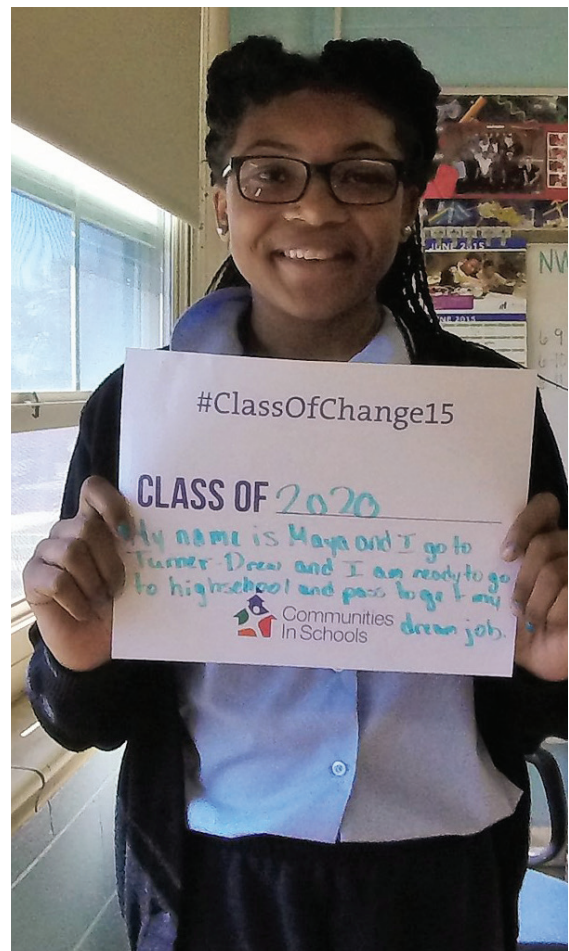 #ClassOfChange15
CLASS OF 2020
My name is Maya and I go to
Turner-Drew and I am ready to go
to highschool and pass to get my
dream job.
Communities
In Schools
JUNE 2015
NE 2015
NW